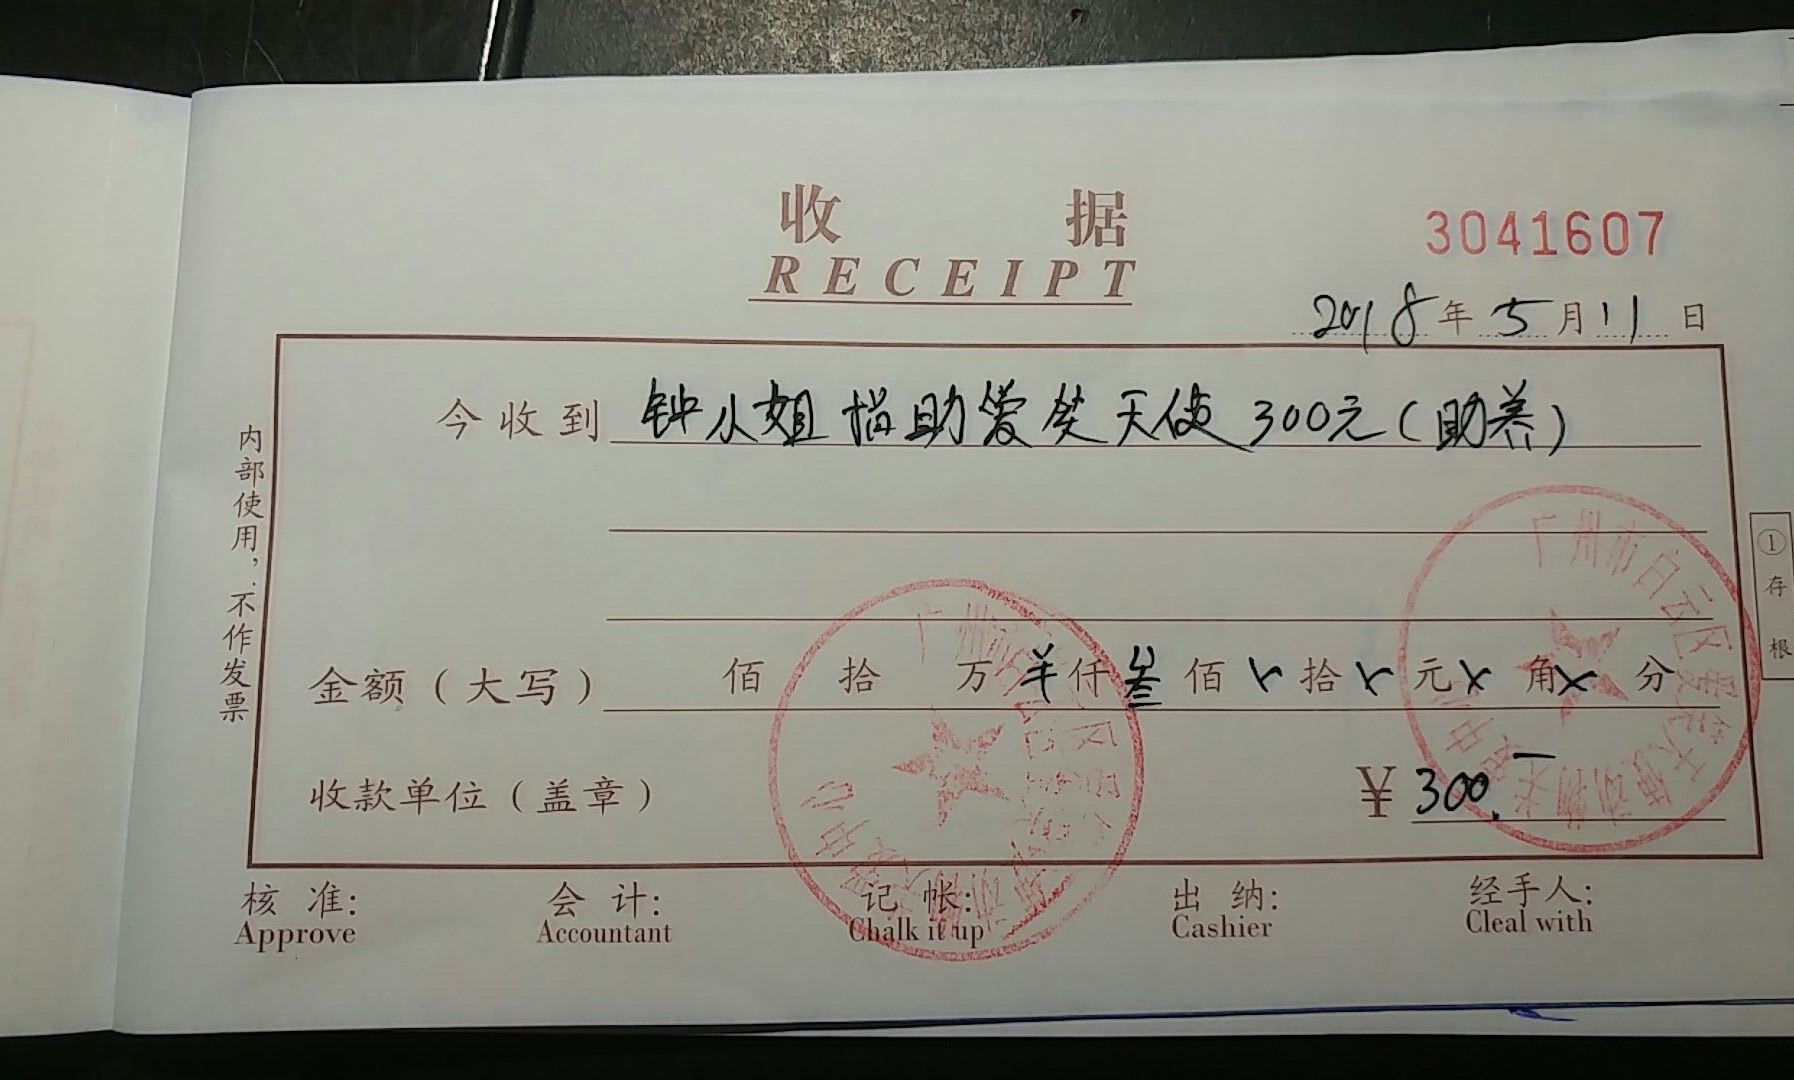 收据
RECEIPT
3041607
2018年5月11日
今收到 钟小姐捐助爱笑天使300元(助养)
金额(大写) 佰 拾 万 羊仟叁佰 × 拾 × 元 × 角 × 分
收款单位(盖章) ¥ 300.—
核 准: 会 计: 记 帐: 出 纳: 经手人:
Approve Accountant Chalk it up Cashier Cleal with
内部使用,不作发票
① 存根
广州市白云区爱笑天使动物